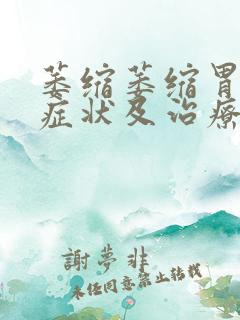 萎缩萎缩胃
症状及治療
謝夢非
未经同意禁止转载